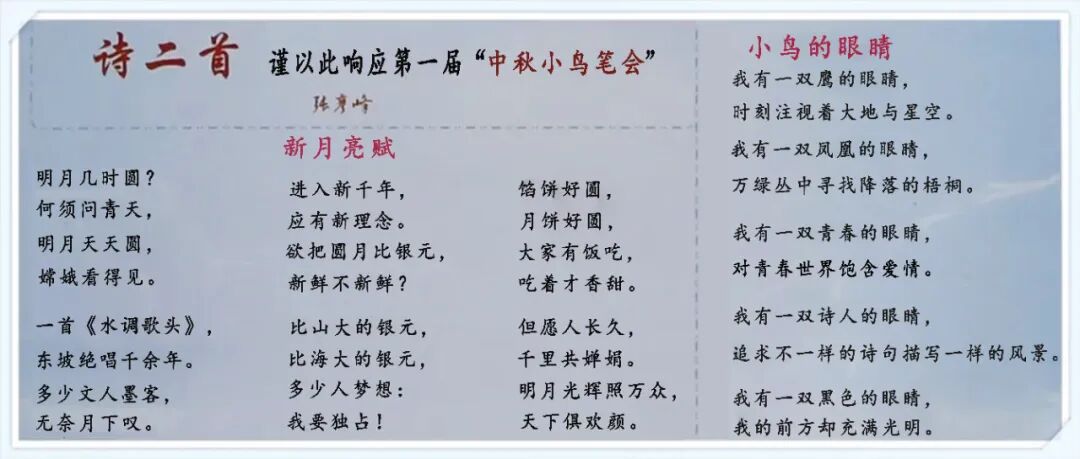 诗二首 谨以此响应第一届“中秋小鸟笔会”
张彦峰
新月亮赋
明月几时圆？
何须问青天，
明月天天圆，
嫦娥看得见。
一首《水调歌头》，
东坡绝唱千余年。
多少文人墨客，
无奈月下叹。
进入新千年，
应有新理念。
欲把圆月比银元，
新鲜不新鲜？
比山大的银元，
比海大的银元，
多少人梦想：
我要独占！
馅饼好圆，
月饼好圆，
大家有饭吃，
吃着才香甜。
但愿人长久，
千里共婵娟。
明月光辉照万众，
天下俱欢颜。
小鸟的眼睛
我有一双鹰的眼睛，
时刻注视着大地与星空。
我有一双凤凰的眼睛，
万绿丛中寻找降落的梧桐。
我有一双青春的眼睛，
对青春世界饱含爱情。
我有一双诗人的眼睛，
追求不一样的诗句描写一样的风景。
我有一双黑色的眼睛，
我的前方却充满光明。